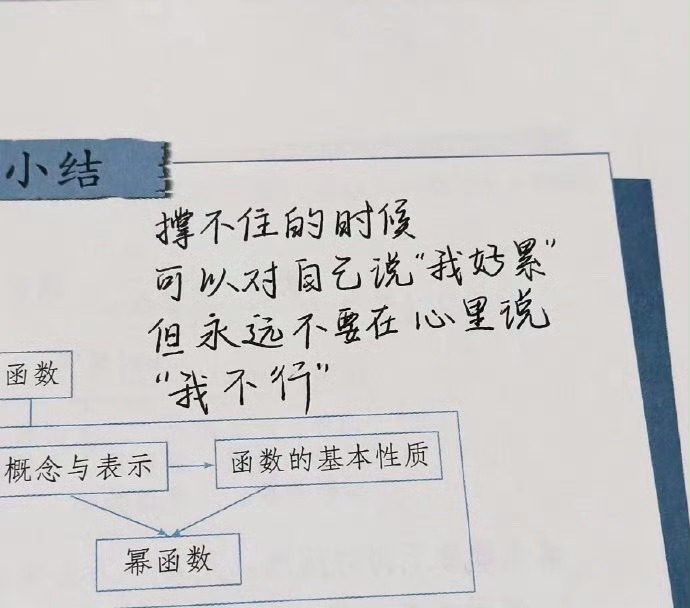 小结
撑不住的时候
可以对自己说"我好累"
但永远不要在心里说
"我不行"
函数
概念与表示
函数的基本性质
幂函数